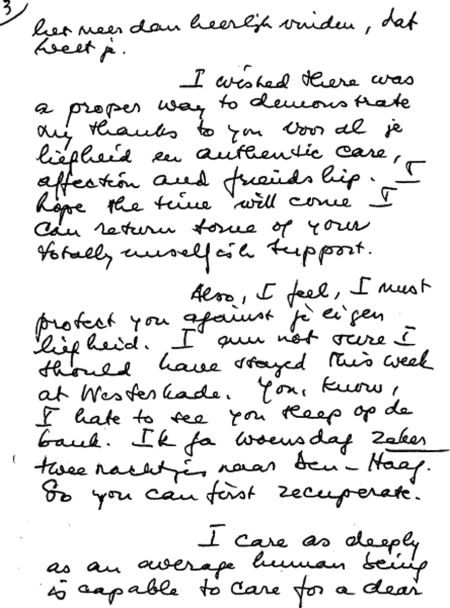 3
het meer dan heerlijk vinden, dat
weet je.
I wished there was
a proper way to demonstrate
my thanks to you voor al je
liefheid en authentic care,
affection and friendship. I
hope the time will come I
can return some of your
totally unselfish support.
Also, I feel, I must
protect you against je eigen
liefheid. I am not sure I
should have stayed this week
at Westerkade. You, know,
I hate to see you sleep op de
bank. Ik ga woensdag zeker
twee nachtjes naar Den-Haag.
So you can first recuperate.
I care as deeply
as an average human being
is capable to care for a dear